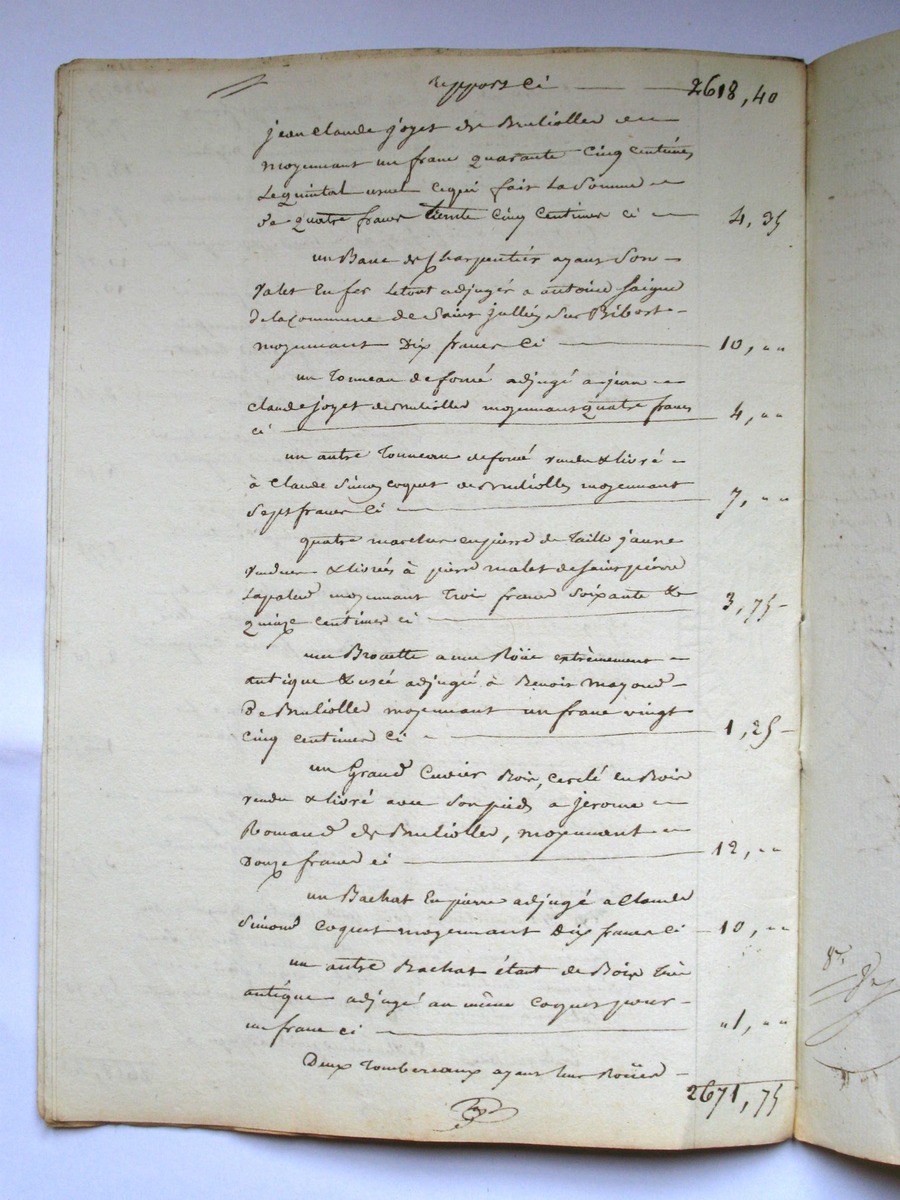 rapport ci 2618,40
jean Claude joyet de Bruliolles
moyennant un franc quarante cinq centimes
Le quintal usuel ce qui fait La Somme
de quatre francs trente cinq Centimes ci 4,35
un Banc de charpentier ayant Son
valet En fer Le tout adjugé a antoine
de la commune de Saint jullien Sur Bibost
moyennant Dix francs Ci 10,,,
un Tonneau de foncé adjugé a jean
Claude joyet de Bruliolles moyennant quatre francs
ci 4,,,
un autre Tonneau de foncé vendu & livré
à Claude Simon coquet de Bruliolles moyennant
Sept francs Ci 7,,,
quatre marches en pierre de Taille jaune
vendues & livrées à pierre malet de Saint pierre
Lapalud moyennant Trois francs Soixante &
quinze centimes ci 3,75
une Brouette a une Roüe extrêmement
antique & usée adjugée à Benoit
De Bruliolles moyennant un franc vingt
cinq centimes Ci 1,25
un Grand Cuvier Bois, cerclé en Bois
vendu & livré avec Son pied a jerome
Romand de Bruliolles, moyennant
Douze francs ci 12,,,
un Bachat En pierre adjugé a Claude
Simond Coquet moyennant Dix francs Ci 10,,,
un autre Bachat étant de Bois Très
antique adjugé au même Coquet pour
un franc ci ,,1,,,
Deux Tombereaux ayant leur Roües
2671,75